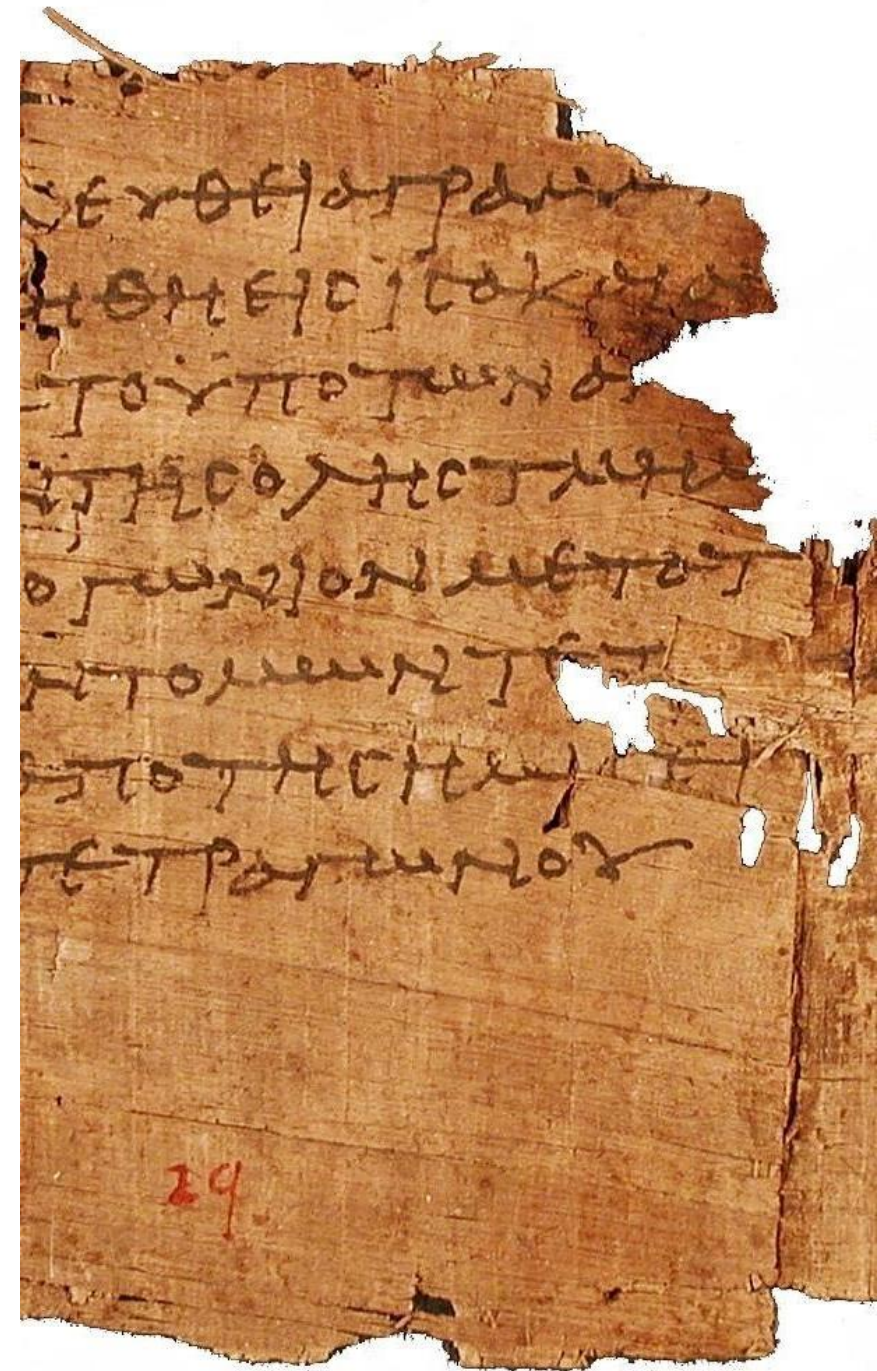 ΕΥΘΕΙΑ ΓΡΑΜΜ
ΗΘΗ ΕΙΣ ΙΣΑ Κ ΑΙ Α
ΤΟ ΥΠΟ ΤΩΝ ΑΝ
ΤΗΣ ΟΛΗΣ ΤΜΗΜ
ΟΓΩΝΙΟΝ ΜΕΤΑ Τ
Ν ΤΟΜΩΝ ΤΕΤ
ΑΠΟ ΤΗΣ ΗΜΙΣΕΙ
ΤΕΤΡΑΓΩΝΟΥ
29